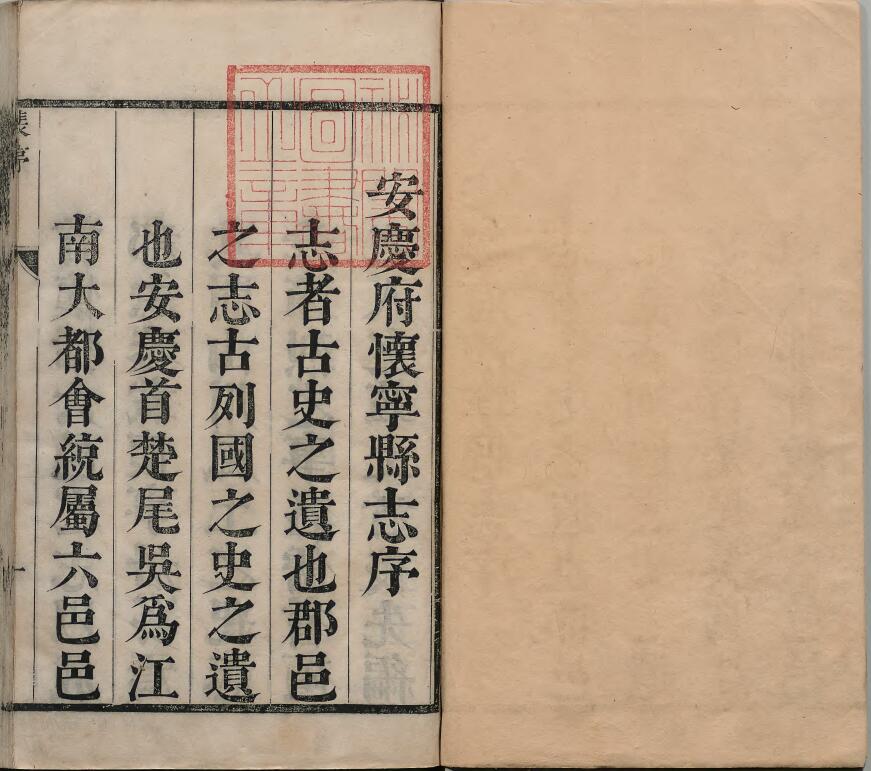 安慶府懷寧縣志序
志者古史之遺也郡邑
之志古列國之史之遺
也安慶首楚尾吳爲江
南大都會統屬六邑邑